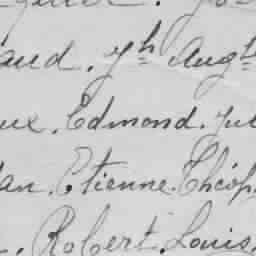 aud. Jh Augt
ux. Edmond. Jul
an. Etienne. Théop
. Robert. Louis.